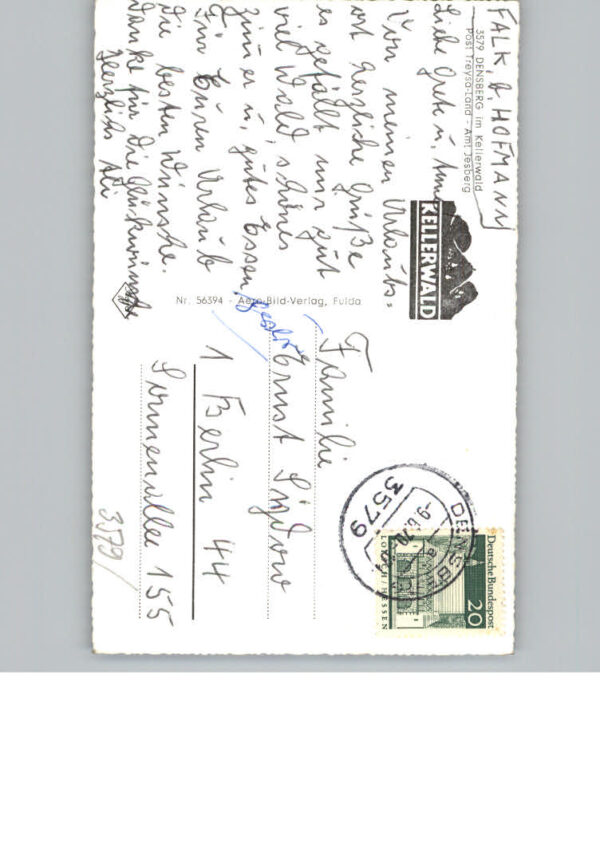 FALK, b. HOFMANN
3579 DENSBERG im Kellerwald
Post Treysa-Land - Amt Jesberg
Liebe Grete u.
Von meinem Urlaubs=
ort herzliche Grüße
es gefällt mir gut
viel Wald, schönes
Zimmer u. gutes Essen
Für Euren Urlaub
die besten Wünsche.
Danke für die Glückwünsche
Herzlich
KELLERWALD
Nr. 56394 - Aero-Bild-Verlag, Fulda
Familie
Ernst Sydow
1 Berlin 44
Sonnenallee 155
3579/
DENSBERG
-9.6.70
3579
Deutsche Bundespost
20
LORSCH/HESSEN